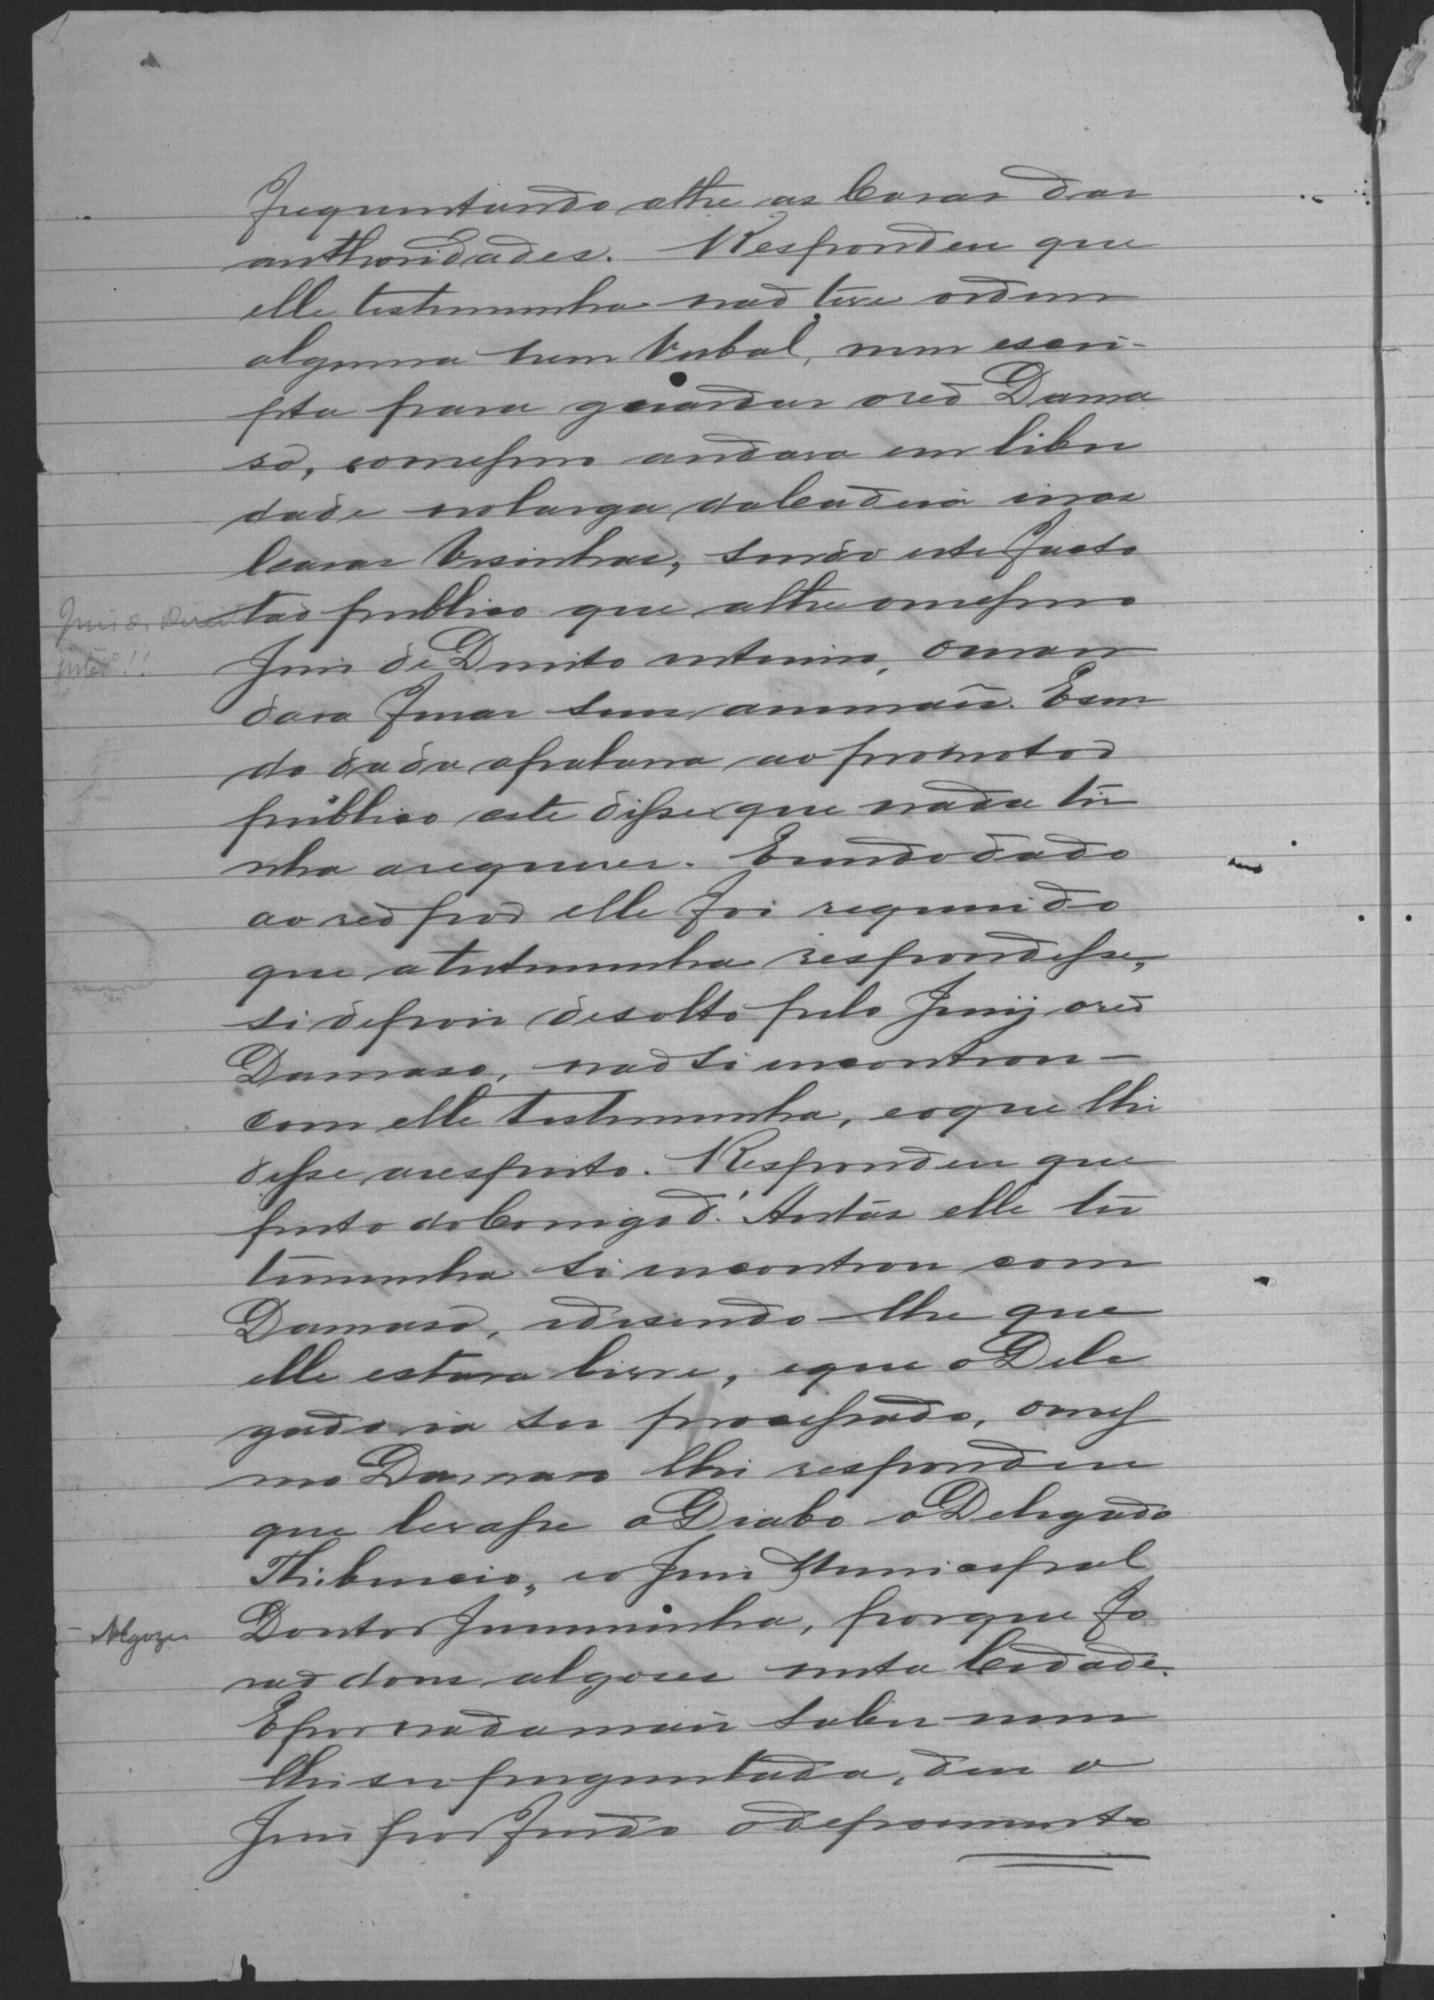 frequentando athe as Casas das
authoridades. Respondeu que
elle testemunha naõ teve ordem
alguma nem Verbal, nem escri-
pta para guardar oreo Dama
so, eomesmo andava em liber
dade nolargo daCadeia enas
Casas Vesinhas, sendo este facto
Juis de Direito
taõ publico que atheomesmo
interº!!
Juis de Direito interino, oman
dava furar seus animais. Esen
do dada apalavra ao promotor
publico este disse que nada ti
nha arequerer. Esendo dado
ao reo por elle foi requerido
que atestemunha respondesse,
si depois desolto pelo Jury oreo
Damaso, naõ si encontrou
com elle testemunha, eoque lhi
disse arespeito. Respondeu que
perto do Antas elle tes
temunha si encontrou com
Damaso, edisendo-lhe que
elle estava livre, eque oDele
gado ia ser processado, omes
mo Damaso lhi respondeu
que levasse oDiabo oDelegado
Thiburcio, eo Juis Municipal
Algozes
Doutor Jumminha, porque fo
raõ dous algoses nesta Cidade.
Epor nadamais saber nem
lhi ser perguntado, deu o
Juis por findo odepoimento